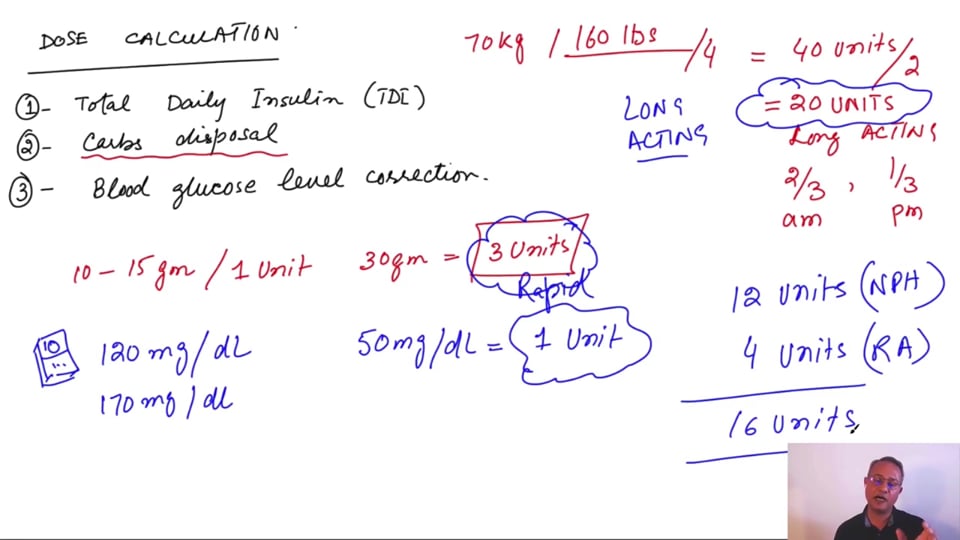 DOSE CALCULATION.
①- Total Daily Insulin (TDI)
②- Carbs disposal
③- Blood glucose level correction.
70kg / 160 lbs /4 = 40 units/2
= 20 UNITS
LONG ACTING
Long ACTING
2/3 am, 1/3 pm
10-15gm / 1 Unit
30gm = 3 Units
Rapid
10
...
120 mg/dL
170 mg/dL
50mg/dL = 1 Unit
12 units (NPH)
4 units (RA)
16 units